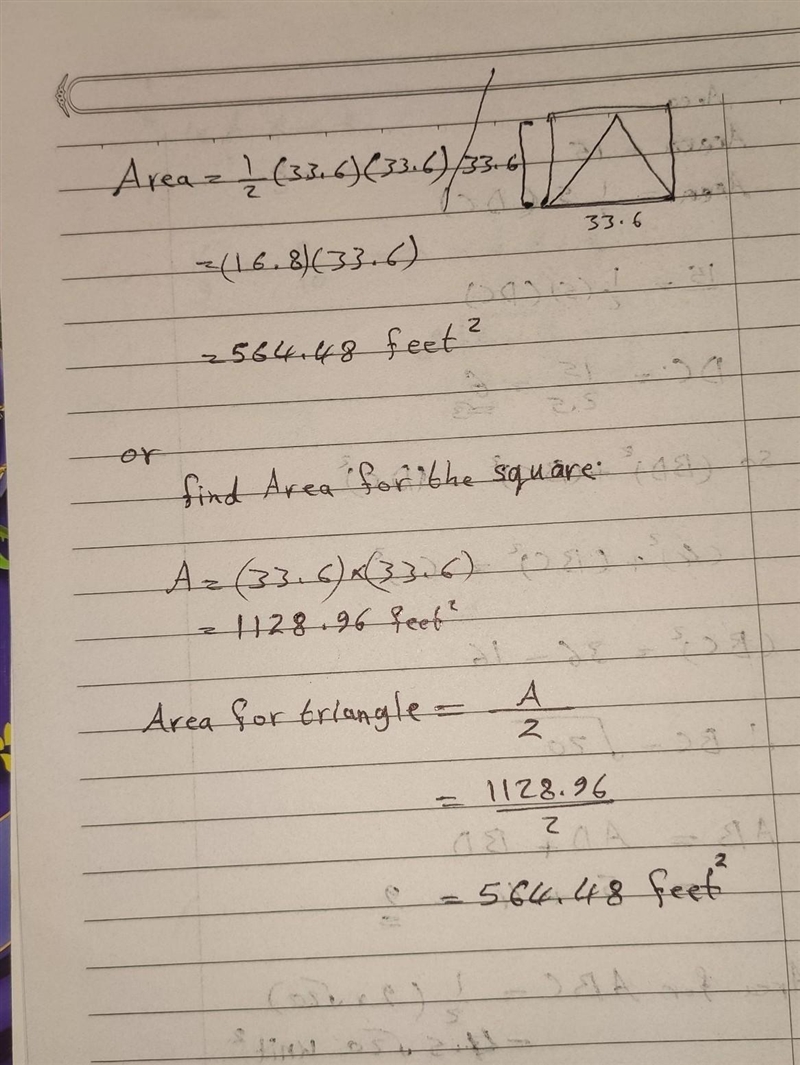 Area = 1/2 (33.6)(33.6) / 33.6
33.6
= (16.8)(33.6)
= 564.48 feet²
or
find Area for the square:
A = (33.6)×(33.6)
= 1128.96 feet²
Area for triangle = A/2
= 1128.96/2
= 564.48 feet²